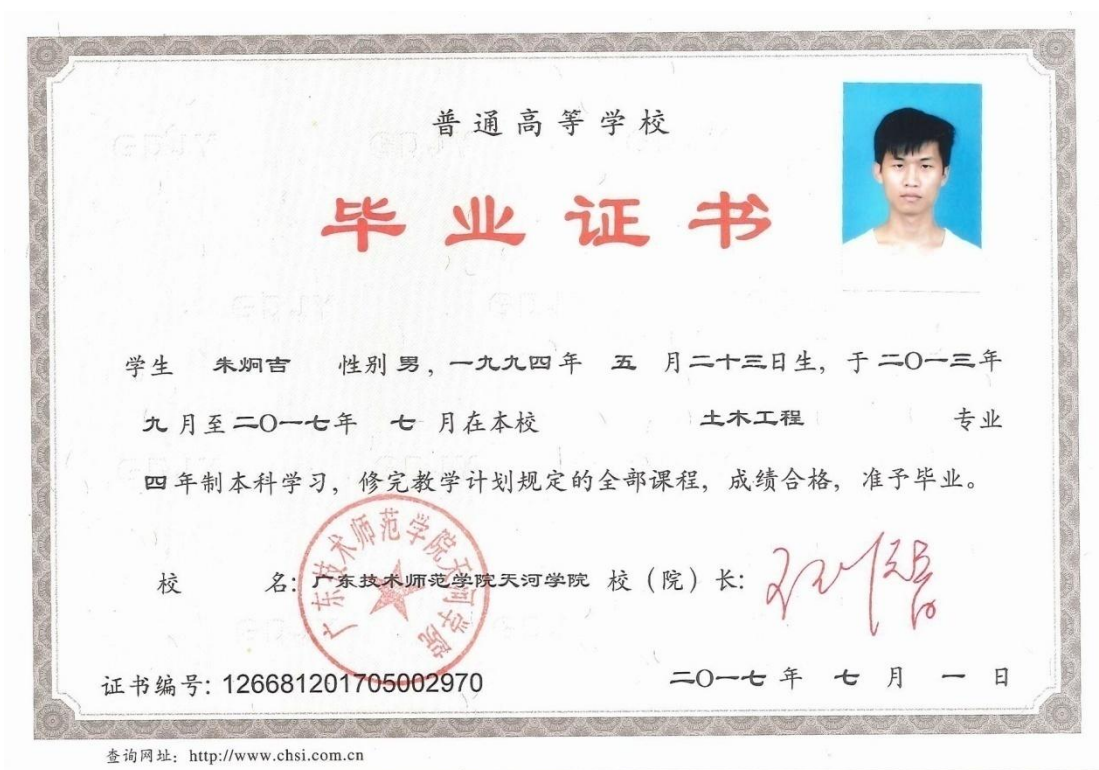 普通高等学校
毕业证书
学生 朱炯吉 性别 男，一九九四年 五 月二十三日生，于二〇一三年
九月至二〇一七年 七 月在本校 土木工程 专业
四年制本科学习，修完教学计划规定的全部课程，成绩合格，准予毕业。
广东技术师范学院天河学院
校 名：广东技术师范学院天河学院 校（院）长：
证书编号：126681201705002970 二〇一七年 七 月 一 日
查询网址：http://www.chsi.com.cn